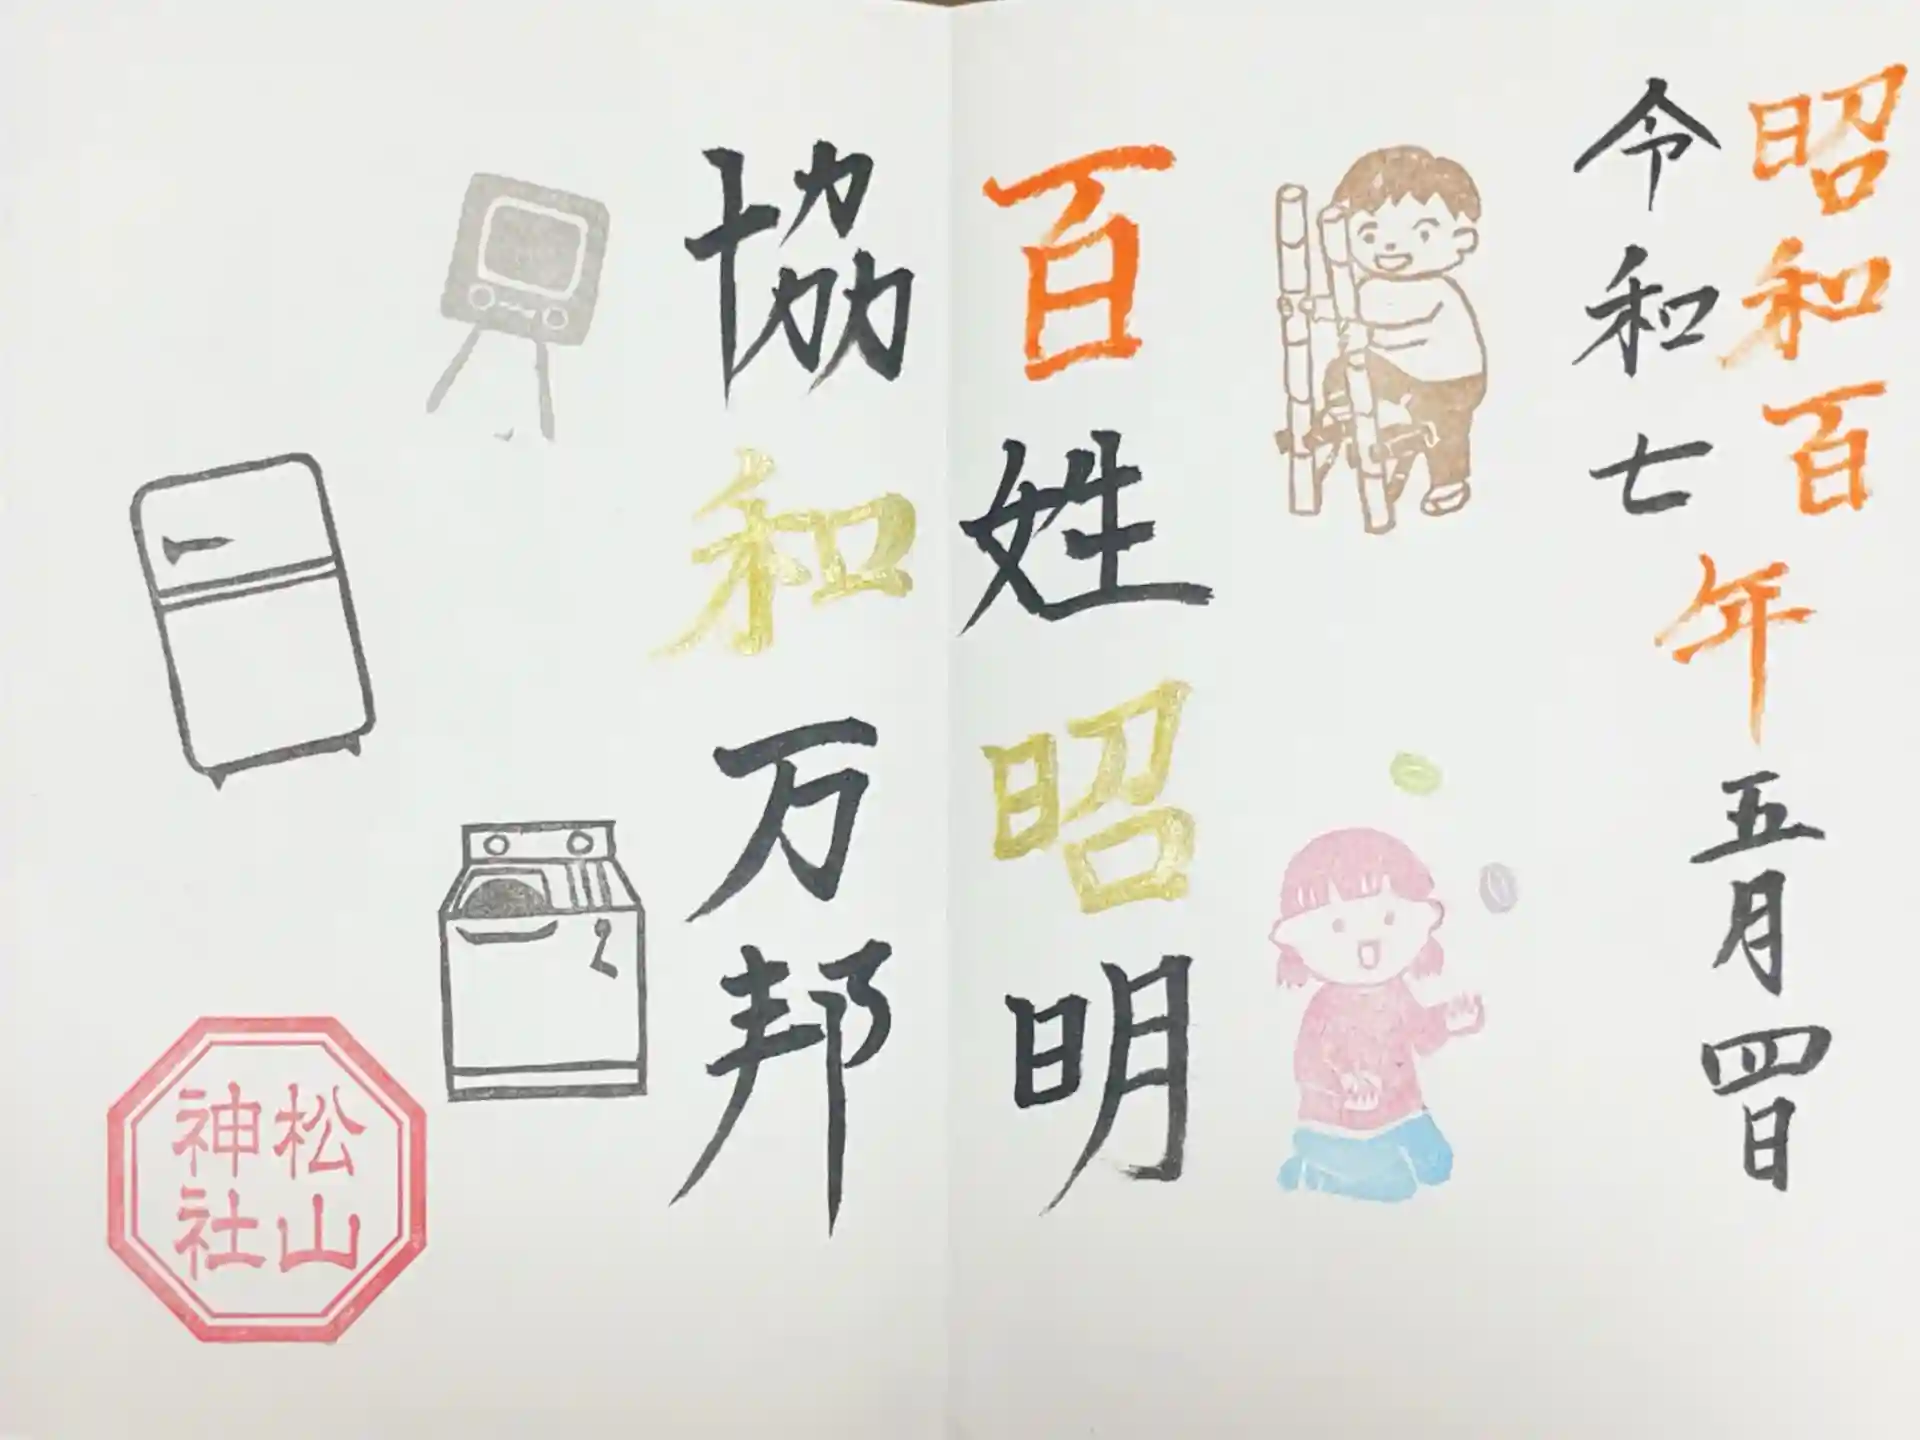 昭和百年五月四日
令和七
百姓昭明
協和万邦
松山
神社